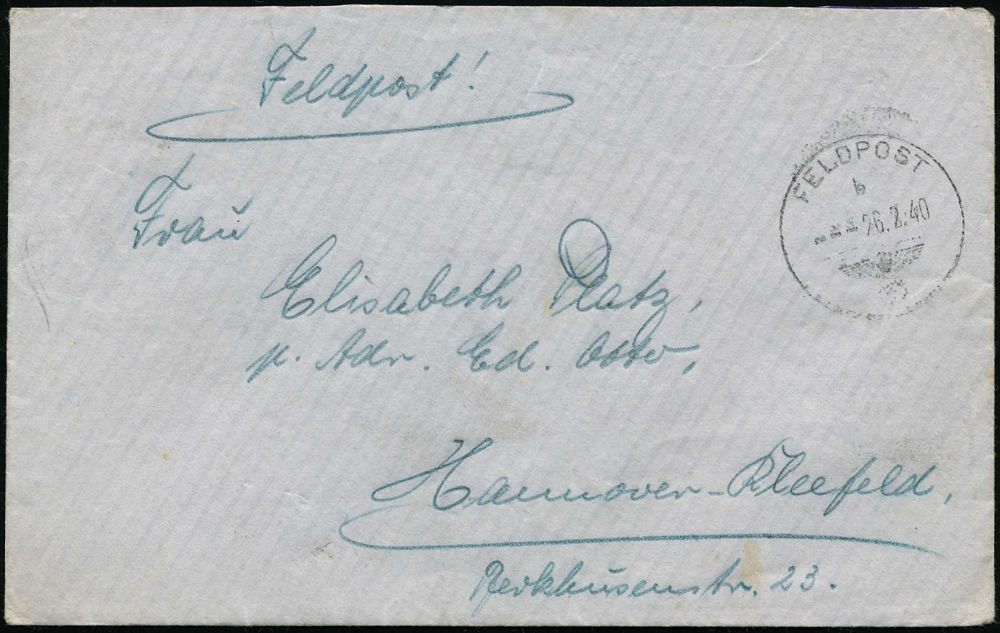 Feldpost!
FELDPOST
b
26.2.40
Frau
Elisabeth Platz,
p. Adr. Ed. Otto,
Hannover-Kleefeld,
Berkhusenstr. 23.